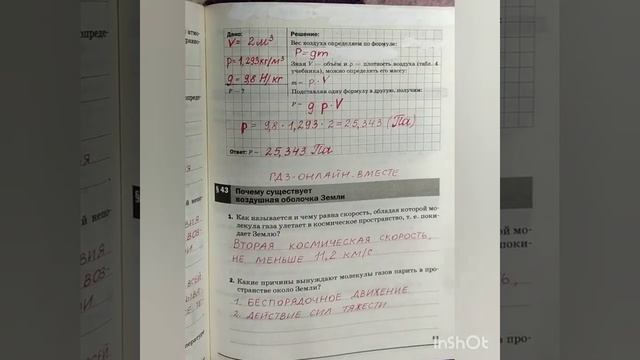 Дано:
V = 2 м³
ρ = 1,293 кг/м³
g = 9,8 Н/кг
P — ?
Решение:
Вес воздуха определяем по формуле:
P = gm
Зная V — объём и ρ — плотность воздуха (табл. 4
учебника), можно определить его массу:
m = ρ · V
Подставляя одну формулу в другую, получим:
P = g ρ · V
p = 9,8 · 1,293 · 2 = 25,343 (Па)
Ответ: P = 25,343 Па
РДЗ-ОНЛАЙН-ВМЕСТЕ
§ 43
Почему существует
воздушная оболочка Земли
1. Как называется и чему равна скорость, обладая которой мо-
лекула газа улетает в космическое пространство, т. е. поки-
дает Землю?
ВТОРАЯ КОСМИЧЕСКАЯ СКОРОСТЬ,
НЕ МЕНЬШЕ 11,2 КМ/С
2. Какие причины вынуждают молекулы газов парить в про-
странстве около Земли?
1. БЕСПОРЯДОЧНОЕ ДВИЖЕНИЕ
2. ДЕЙСТВИЕ СИЛ ТЯЖЕСТИ
InShOt